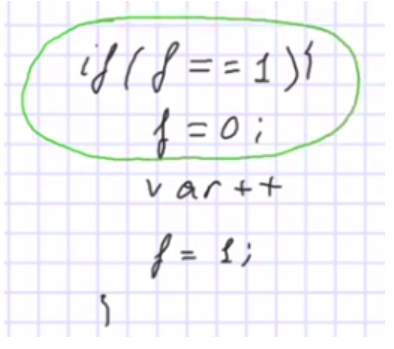 if(f==1){
f=0;
var++
f=1;
}